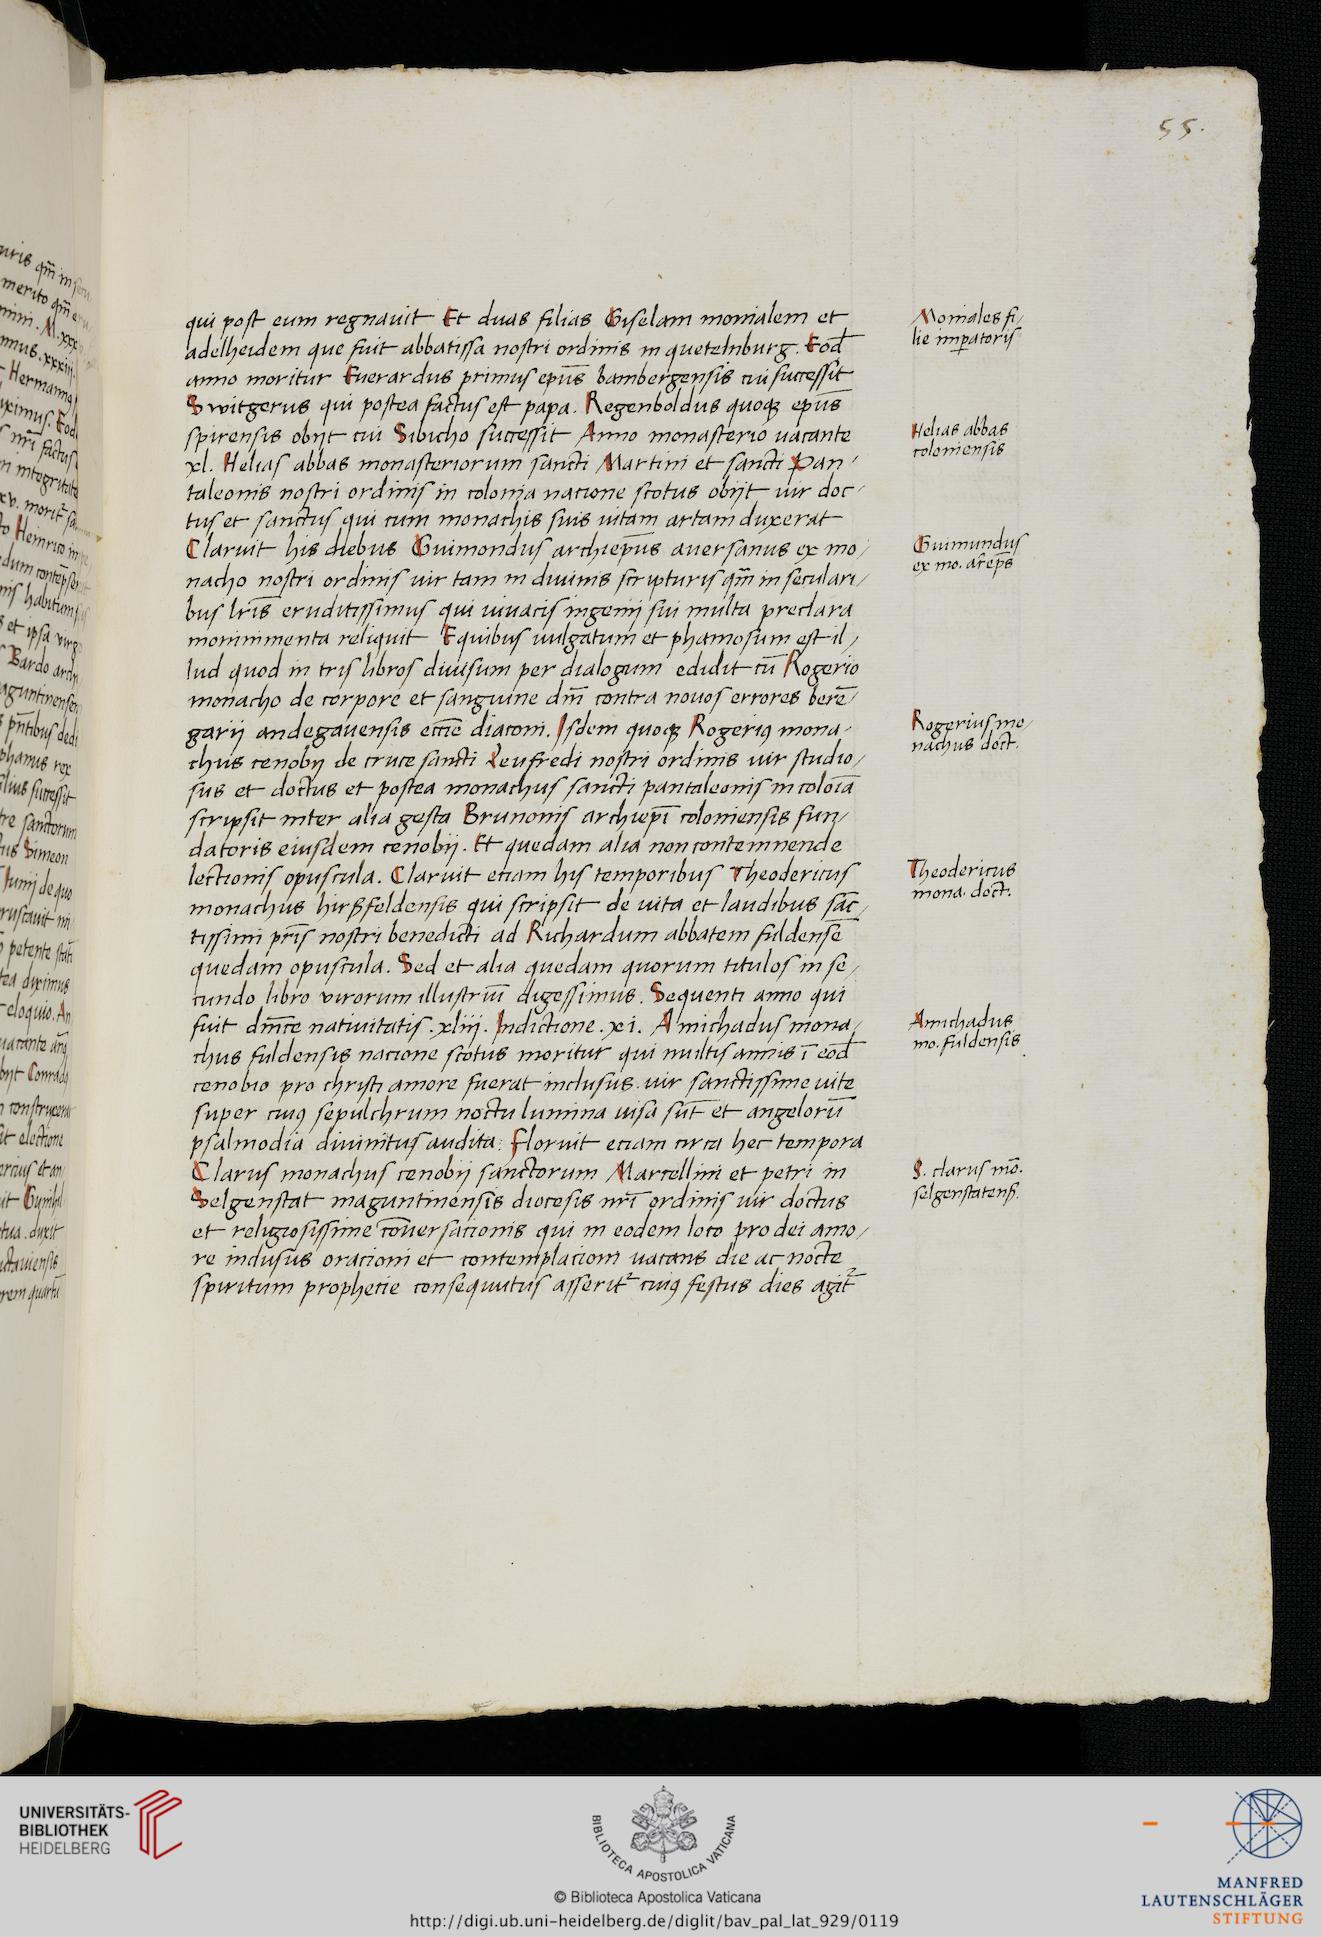 55.
qui post eum regnauit Et duas filias Giselam monialem et
adelheidem que fuit abbatissa nostri ordinis in quetelnburg. Eod̄
anno moritur Euerardus primus ep̄us bambergensis cui successit
Switgerus qui postea factus est papa. Regenboldus quoqꝫ ep̄us
spirensis obijt cui Sibicho successit Anno monasterio uacante
xl. Helias abbas monasteriorum sancti Martini et sancti Pan-
taleonis nostri ordinis in colonia nacione scotus obijt uir doc-
tus et sanctus qui cum monachis suis uitam artam duxerat
Claruit his diebus Guimondus archiep̄us auersanus ex mo-
nacho nostri ordinis uir tam in diuinis scripturis qm̄ in seculari-
bus lr̄is eruditissimus qui uiuacis ingenij sui multa preclara
monimmenta reliquit Equibus uulgatum et phamosum est il-
lud quod in tris libros diuisum per dialogum edidit cū Rogerio
monacho de corpore et sanguine dm̄ contra nouos errores berē-
garij andegauensis ecc̄ie diaconi. Isdem quoqꝫ Rogeriꝰ mona-
chus cenobij de cruce sancti Leufredi nostri ordinis uir studio-
sus et doctus et postea monachus sancti pantaleonis in coloīa
scripsit inter alia gesta Brunonis archiep̄i coloniensis fun-
datoris eiusdem cenobij. Et quedam alia non contemnende
lectionis opuscula. Claruit eciam his temporibus Theodericus
monachus hirßfeldensis qui scripsit de uita et laudibus sāc-
tissimi pr̄is nostri benedicti ad Richardum abbatem fuldensē
quedam opuscula. Sed et alia quedam quorum titulos in se-
cundo libro virorum illustriū digessimus. Sequenti anno qui
fuit dm̄ce natiuitatis .xliij. Indictione .xi. Amichadus mona-
chus fuldensis nacione scotus moritur qui multis annis ī eod̄
cenobio pro christi amore fuerat inclusus. uir sanctissime uite
super cuiꝰ sepulchrum noctu lumina uisa sūt et angelorū
psalmodia diuinitus audita. Floruit eciam circa hec tempora
Clarus monachus cenobij sanctorum Marcellini et petri in
Selgenstat maguntinensis diocesis nr̄i ordinis uir doctus
et religiosissime cōuersacionis qui in eodem loco pro dei amo-
re inclusus oracioni et contemplacioni uacans die ac nocte
spiritum prophetie consequutus asserit᷑ cuiꝰ festus dies agit᷑
Moniales fi-
lie imꝑatoris
Helias abbas
coloniensis
Guimundus
ex mo. arep̄s
Rogerius mo-
nachus doct.
Theodericus
mona. doct.
Amichadus
mo. fuldensis
S. clarus mō.
selgenstatenß.
UNIVERSITÄTS-
BIBLIOTHEK
HEIDELBERG
BIBLIOTECA APOSTOLICA VATICANA
© Biblioteca Apostolica Vaticana
http://digi.ub.uni-heidelberg.de/diglit/bav_pal_lat_929/0119
MANFRED
LAUTENSCHLÄGER
STIFTUNG